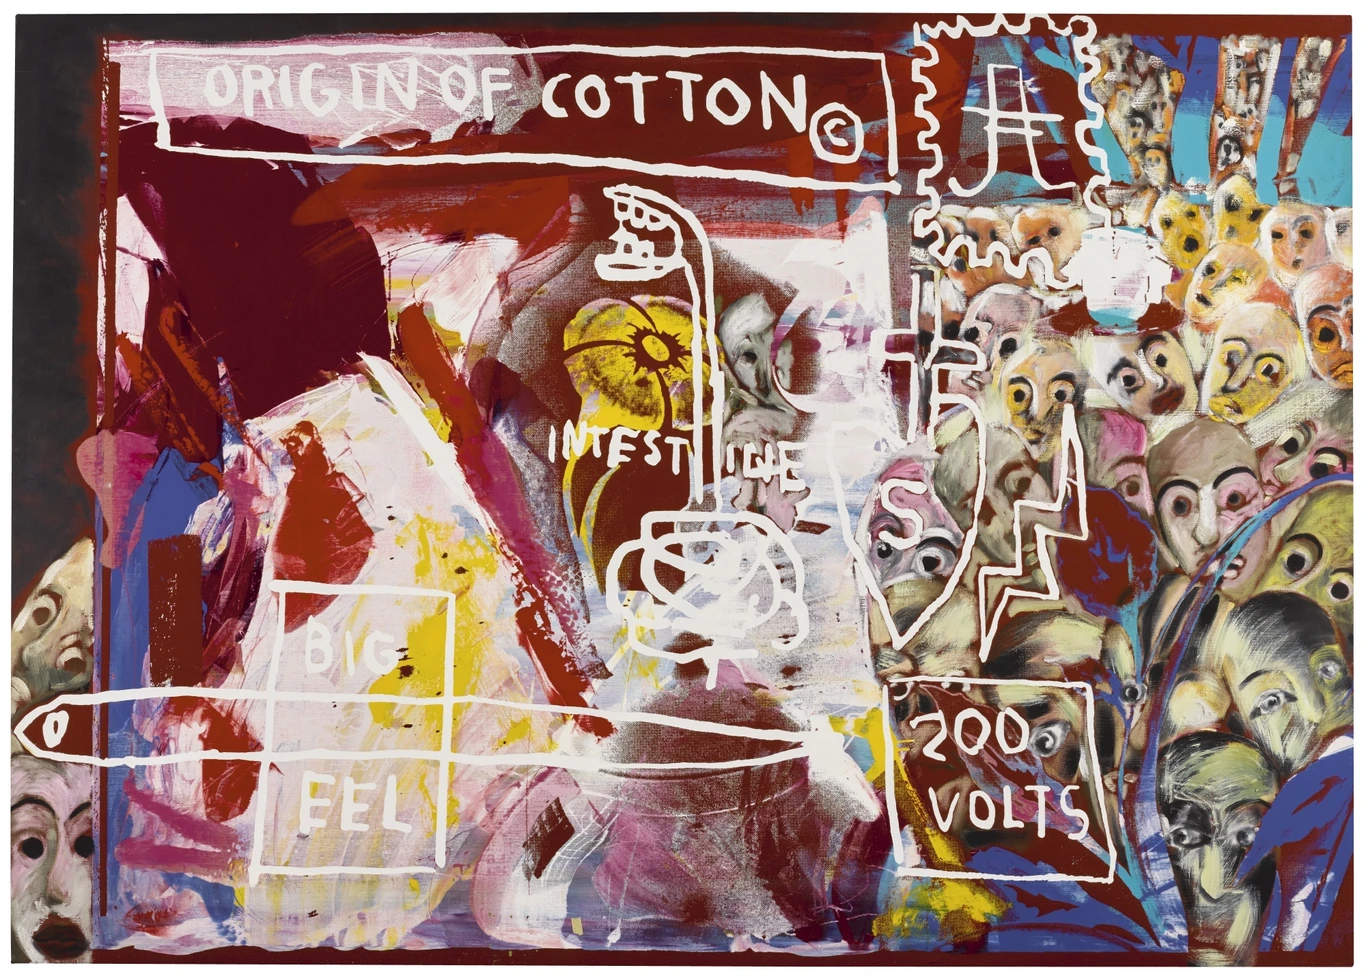 ORIGIN OF COTTON©
INTESTINE
S
BIG
EEL
200
VOLTS